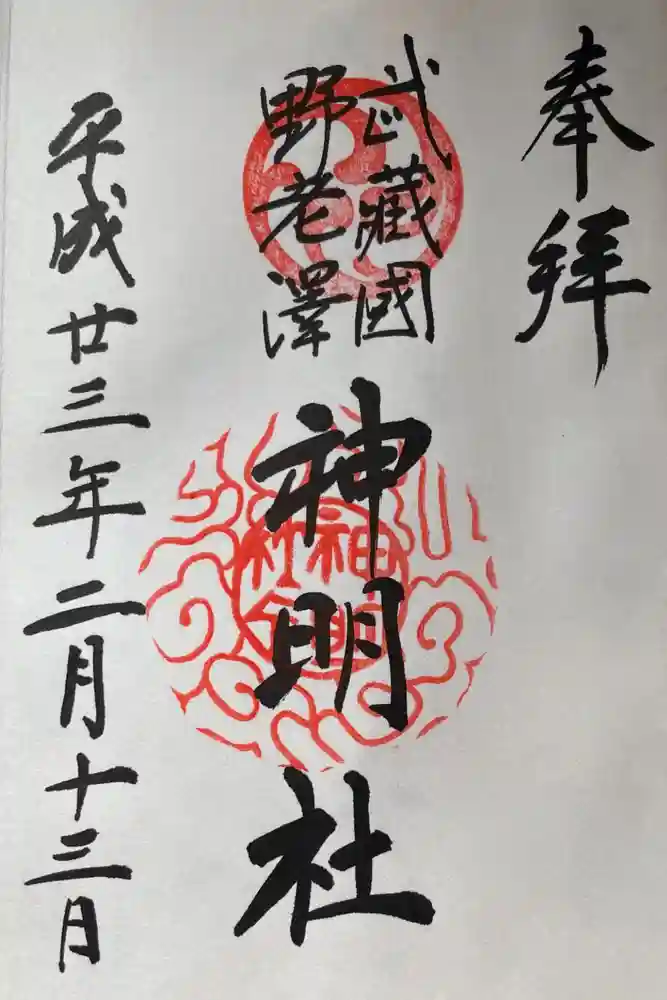 奉拝
武蔵國
野老澤
神明社
平成廿三年二月十三日